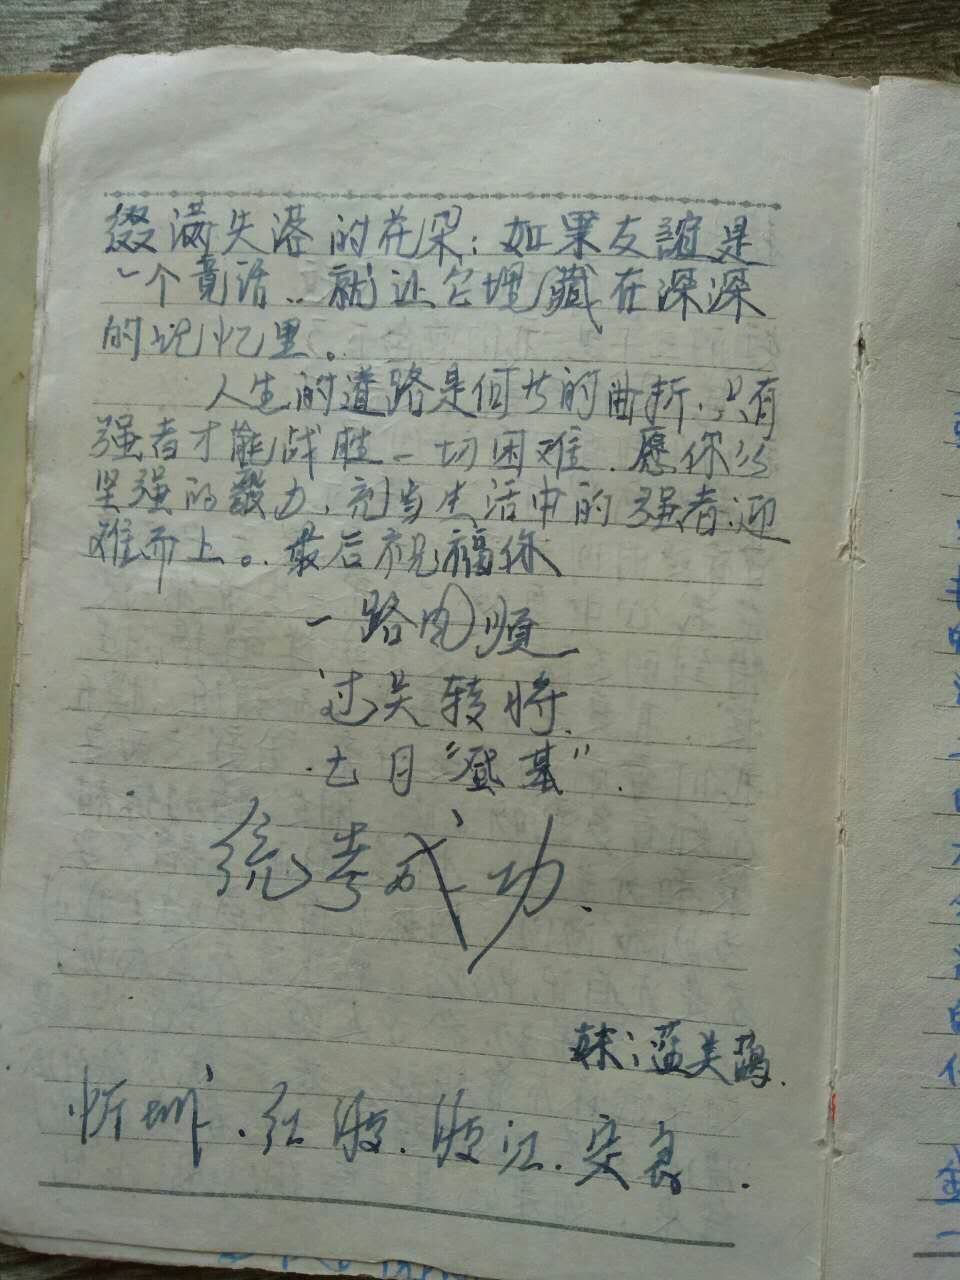 缀满失落的花朵；如果友谊是
一个竟语..就让它埋藏在深深
的记忆里。
人生的道路是何等的曲折.只有
强者才能战胜一切困难.愿你以
坚强的毅力、充当生活中的强者迎
难而上。最后祝福你
一路风顺
过关转将.
七月“登基”.
统考成功.
妹：蓝美鹃.
红波.波江.安良.